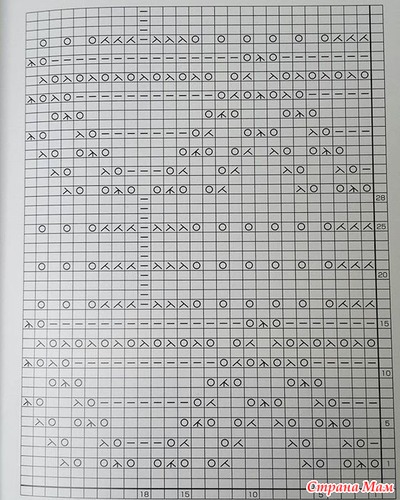 28
25
20
15
10
5
1
18 15 10 5
Страна Мам